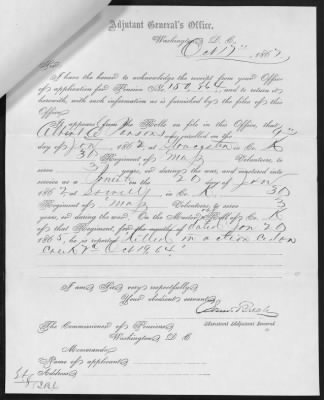 Adjutant General's Office,
Washington, D. C.
Oct 17" 1867
Sir:
I have the honor to acknowledge the receipt from your Office
of application for Pension No. 150,364, and to return it
herewith, with such information as is furnished by the files of this
Office.
It appears from the Rolls on file in this Office, that
Parsons was enrolled on the 9"
day of Jan, 186 at in Co. K
30 Regiment of Mass Volunteers, to serve
3 years, or during the war, and mustered into
service as a in the 20 day of Jan
186 at Lowell in Co. K 30
Regiment of Mass Volunteers, to serve 3
years, or during the war. On the Muster Roll of Co. K
of that Regiment, for the months of dated Jan 20
1865, he is reported "Killed in action Cedar
Creek Va Oct 19, 64."
I am Sir, very respectfully,
Your obedient servant,
Assistant Adjutant General
The Commissioner of Pensions
Washington, D. C.
Memoranda:
Name of applicant
Address